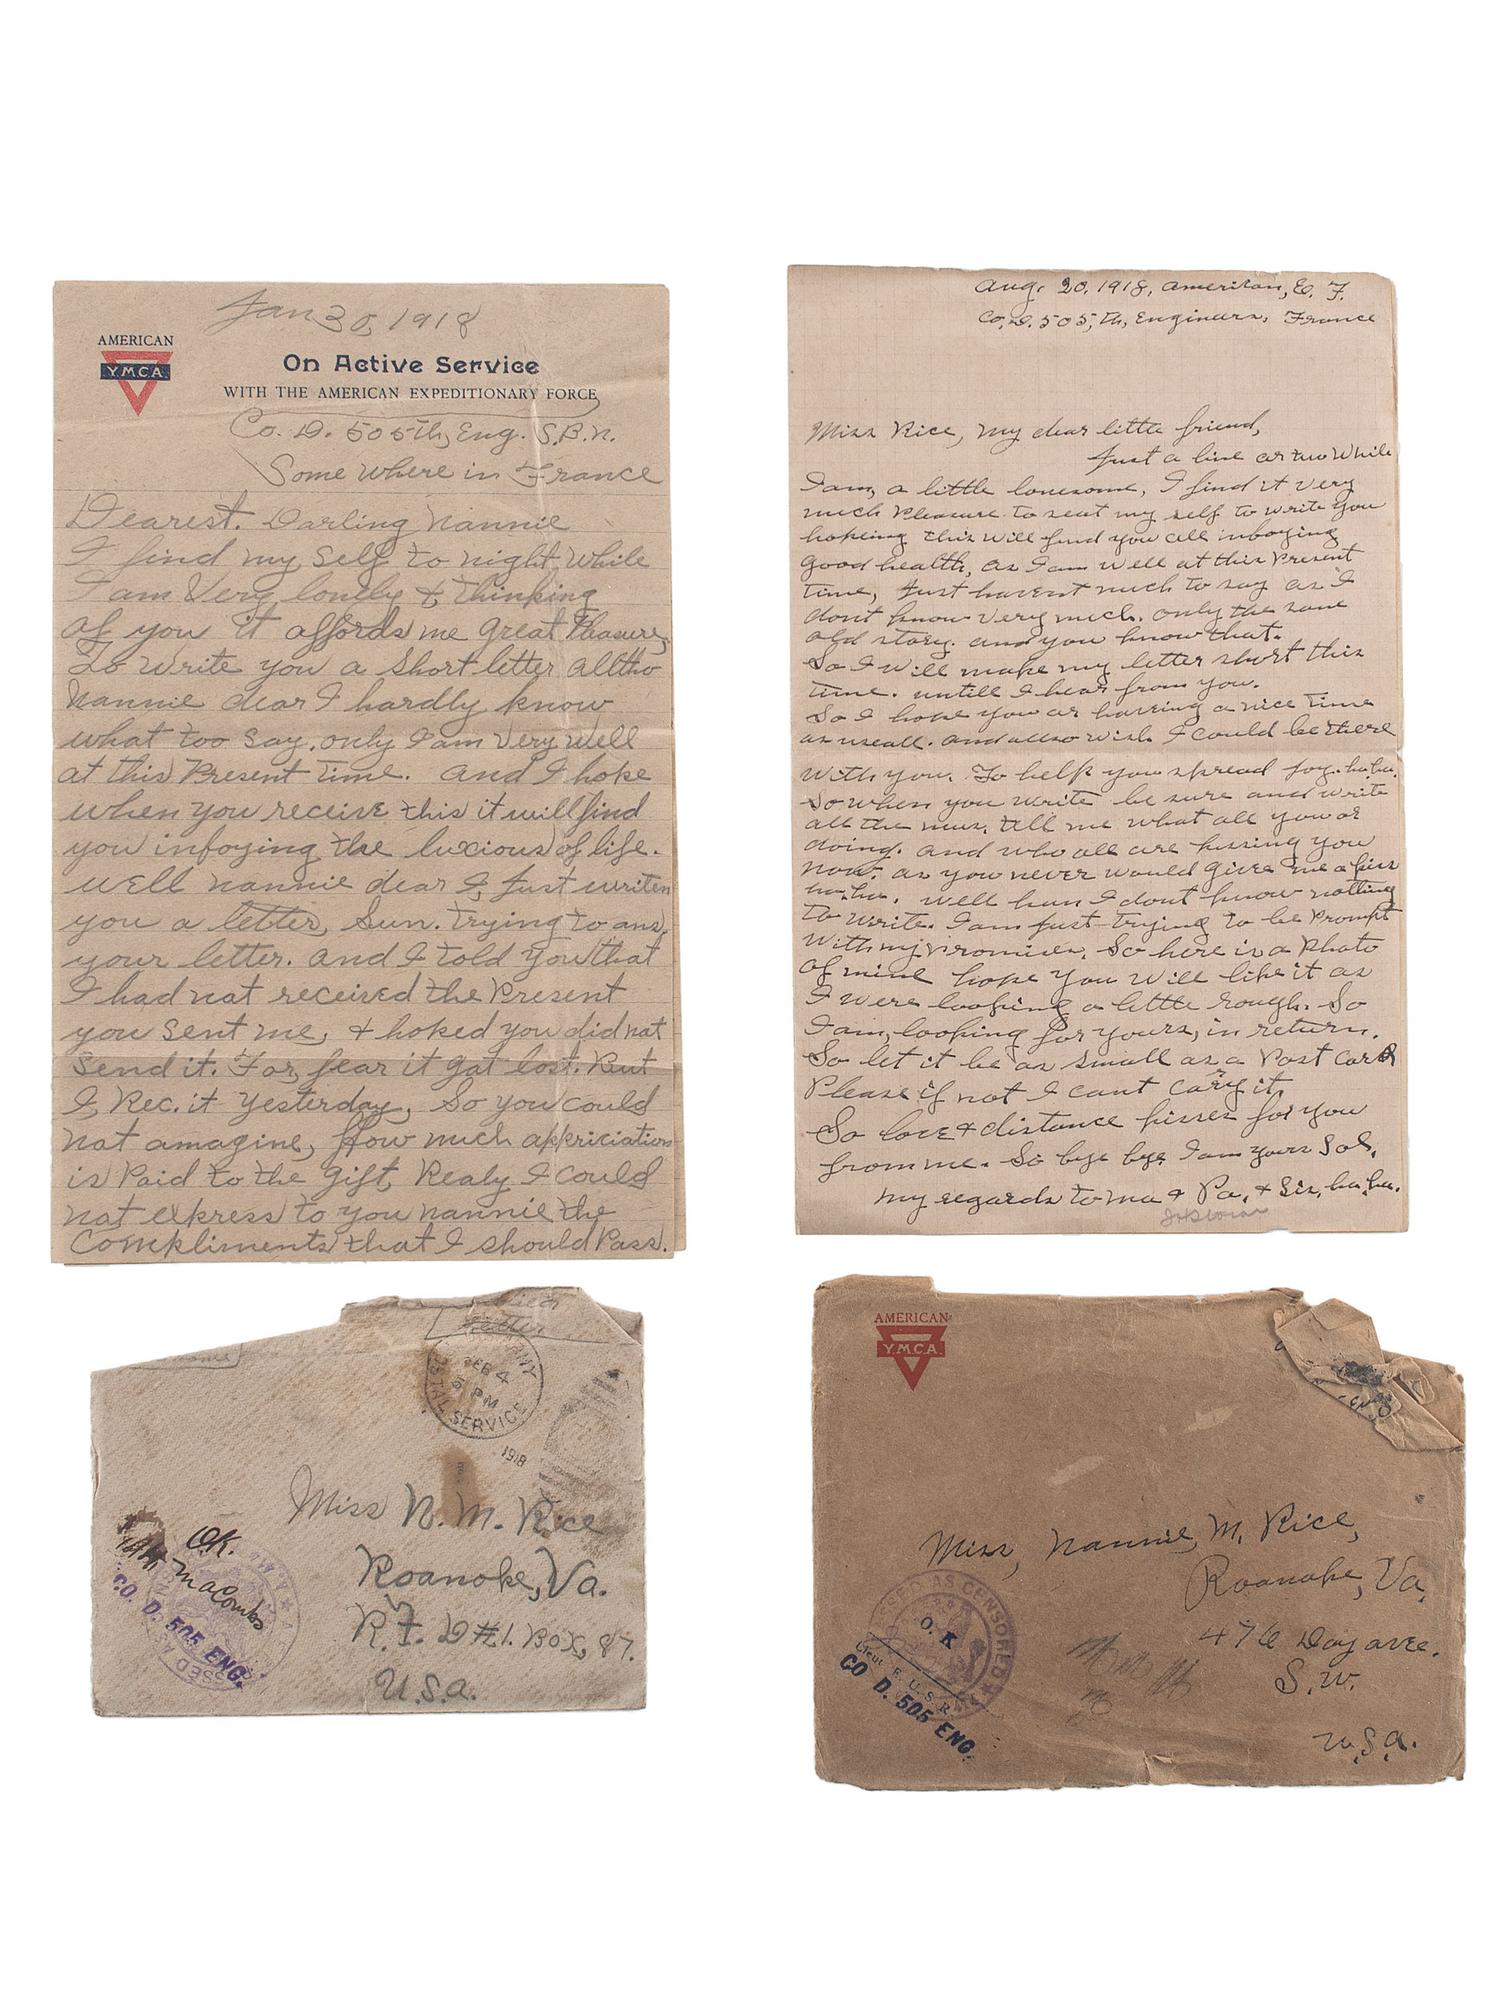 Jan 30, 1918
AMERICAN
Y.M.C.A.
On Active Service
WITH THE AMERICAN EXPEDITIONARY FORCE
Co. D. 505th, Eng. S.B.N.
Some Where in France
Dearest. Darling Nannie
I find my self to night, while
I am Very lonely & thinking
of you it affords me great Pleasure,
To write you a short letter alltho
Nannie dear I hardly know
what too say. only I am very well
at this Present time. And I hope
when you receive this it will find
you injoying the luxious of life.
well nannie dear I, just writen
you a letter, Sun. trying to ans,
your letter. and I told you that
I had not received the Present
you sent me, & hoked you did not
send it. For, fear it got lost. But
I, Rec. it yesterday, So you could
not amagine, How much appriciation
is Paid to the gift, Realy I could
not express to you nannie the
Compliments that I should Pass.
Aug. 20, 1918, American, E. F.
Co. D. 505, th, Engineers, France
Miss Rice, my dear little friend,
Just a line or two While
I am, a little lonesome, I find it very
much Pleasure to seat my self to write you
hopeing this will find you all injoying
good health, as I am well at this Present
time, Just havent much to say as I
dont know very much. only the same
old story. and you know that.
So I will make my letter short this
time. untill I hear from you.
So I hope you ar having a nice time
as useall. and allso wish I could be there
with you. To help you spread joy. ha.ha.
So when you write be sure and write
all the nus. tell me what all you ar
doing. and who all are kissing you
now. as you never would give me a kiss
ha.ha. well hun I dont know nothing
to write. I am just trying to be Prompt
with my Promises. So here is a Photo
of mine hope you will like it as
I were looking a little rough. So
I am, looking for yours, in return.
So let it be as small as a Post card
Please if not I cant cary it
So love & distance kisses for you
from me. So bye bye I am yours Sol,
my regards to ma & Pa, & Sis, ha, ha.
Letter
FEB 4
5 PM
SERVICE
1918
Miss N. M. Rice
Roanoke, Va.
R.F.D #1. Box, 87.
U.S.a.
OK.
Macombs
CO. D. 505 ENG.
AMERICAN
Y.M.C.A.
Miss, Nannie, M, Rice,
Roanoke, Va,
476 Day avee.
S.W.
U.S.a.
PASSED AS CENSORED
O. K
Lieut E. U.S.R.
CO D. 505 ENG.